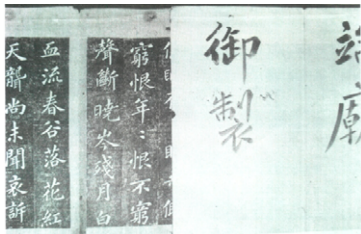 端廟
御製
窮恨年〻恨不窮
聲斷曉岑殘月白
血流春谷落花紅
天聾尚未聞哀訴